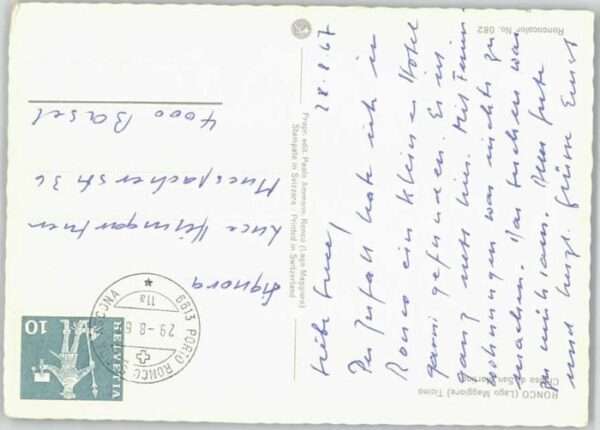 RONCO (Lago Maggiore) Ticino
Chiesa di San Martino
28.8.67
Liebe Luce!
Per Zufall habe ich in
Ronco ein kleines Hotel
garni gefunden. Es ist
ganz nett hier. Mit Ferien-
wohnungen war nichts zu
machen. Das suchen war
zu mühsam. Alles Gute
und herzl. Grüsse Ernst
Ronco­color No. 082
Propr. edit. Paolo Ammann, Ronco (Lago Maggiore)
Stampato in Svizzera - Printed in Switzerland
HELVETIA
10
6613 PORTO RONCO
29.-8.6
11a
Signora
Luce
36
4000 Basel